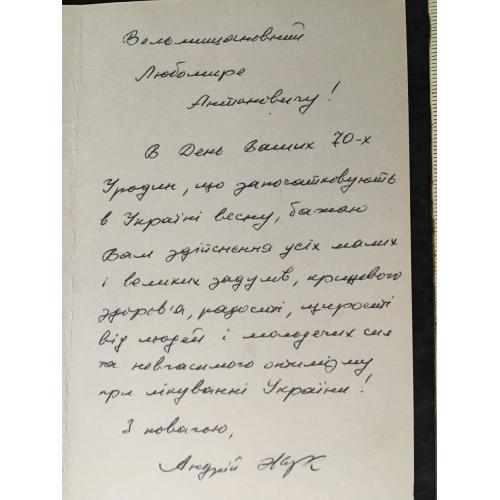 Вельмишановний
Любомире
Антоновичу!
В День Ваших 70-х
Уродин, що започатковують
в Україні весну, бажаю
Вам здійснення усіх малих
і великих задумів, крицевого
здоров'я, радості, щирості
від людей і молодечих сил
та невгасимого оптимізму
при лікуванні України!
З повагою,
Андрій